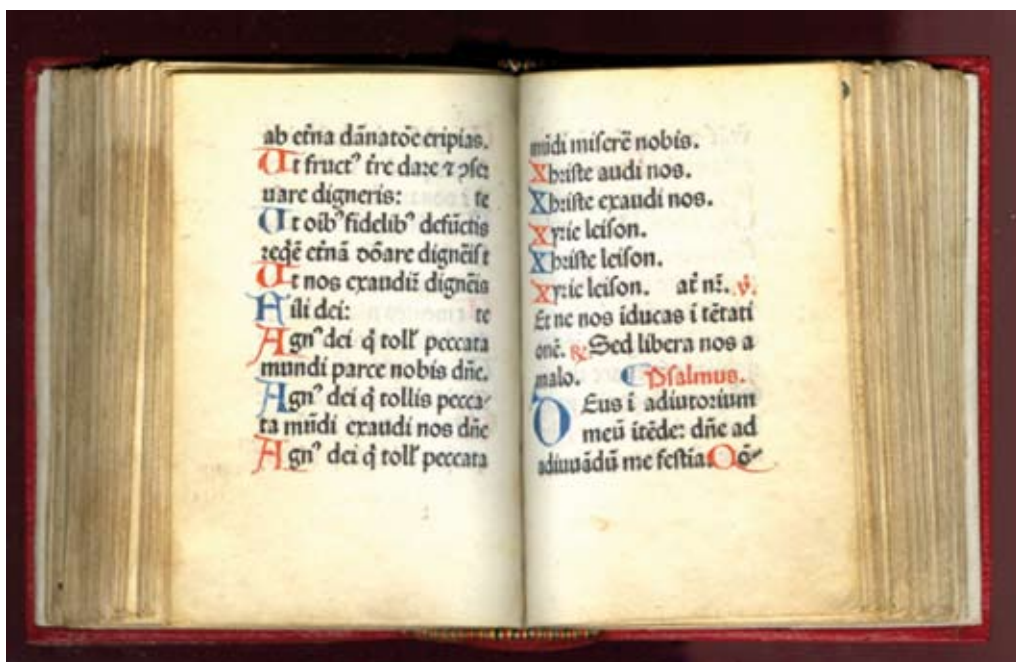 ab etna dānatōe eripias.
Ut fruct⁹ tr̄e dare ⁊ ↄser
uare digneris: te
Ut oib⁹ fidelib⁹ defūctis
reqē etnā dōare dignēis t
Ut nos exaudir̄ dignēis
Fili dei: te
Agn⁹ dei q̄ toll̄ peccata
mundi parce nobis dn̄e.
Agn⁹ dei q̄ tollis pecca-
ta mūdi exaudi nos dn̄e
Agn⁹ dei q̄ toll̄ peccata
mūdi miserē nobis.
Xpriste audi nos.
Xpriste exaudi nos.
Xyrie leison.
Xpriste leison.
Xyrie leison. at̄ nr̄. ℣.
Et ne nos īducas ī tētati
onē. ℟. Sed libera nos a
malo. Psalmus.
DEus ī adiutorium
meū ītēde: dn̄e ad
adiuuādū me festia. Oō